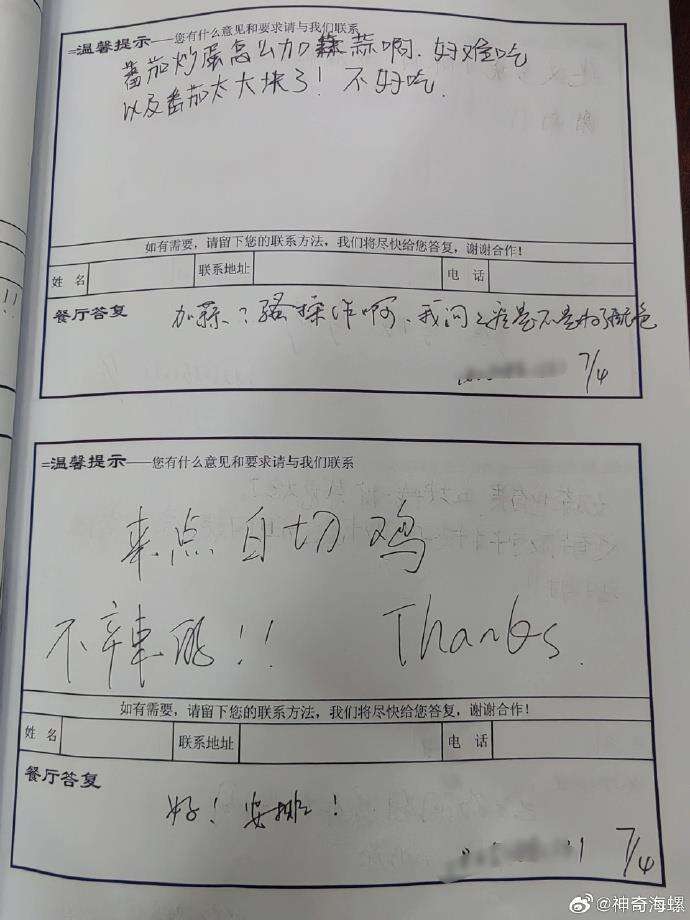 =温馨提示——您有什么意见和要求请与我们联系
番茄炒蛋怎么加蒜啊，好难吃
以及番茄太大块了！不好吃.
如有需要，请留下您的联系方法，我们将尽快给您答复，谢谢合作！
姓 名 联系地址 电 话
餐厅答复
加蒜？骚操作啊，我问之后是不是为了配色
7/4
=温馨提示——您有什么意见和要求请与我们联系
来点白切鸡
不辛辣的!! Thanks.
如有需要，请留下您的联系方法，我们将尽快给您答复，谢谢合作！
姓 名 联系地址 电 话
餐厅答复
好！安排！
7/4
@神奇海螺